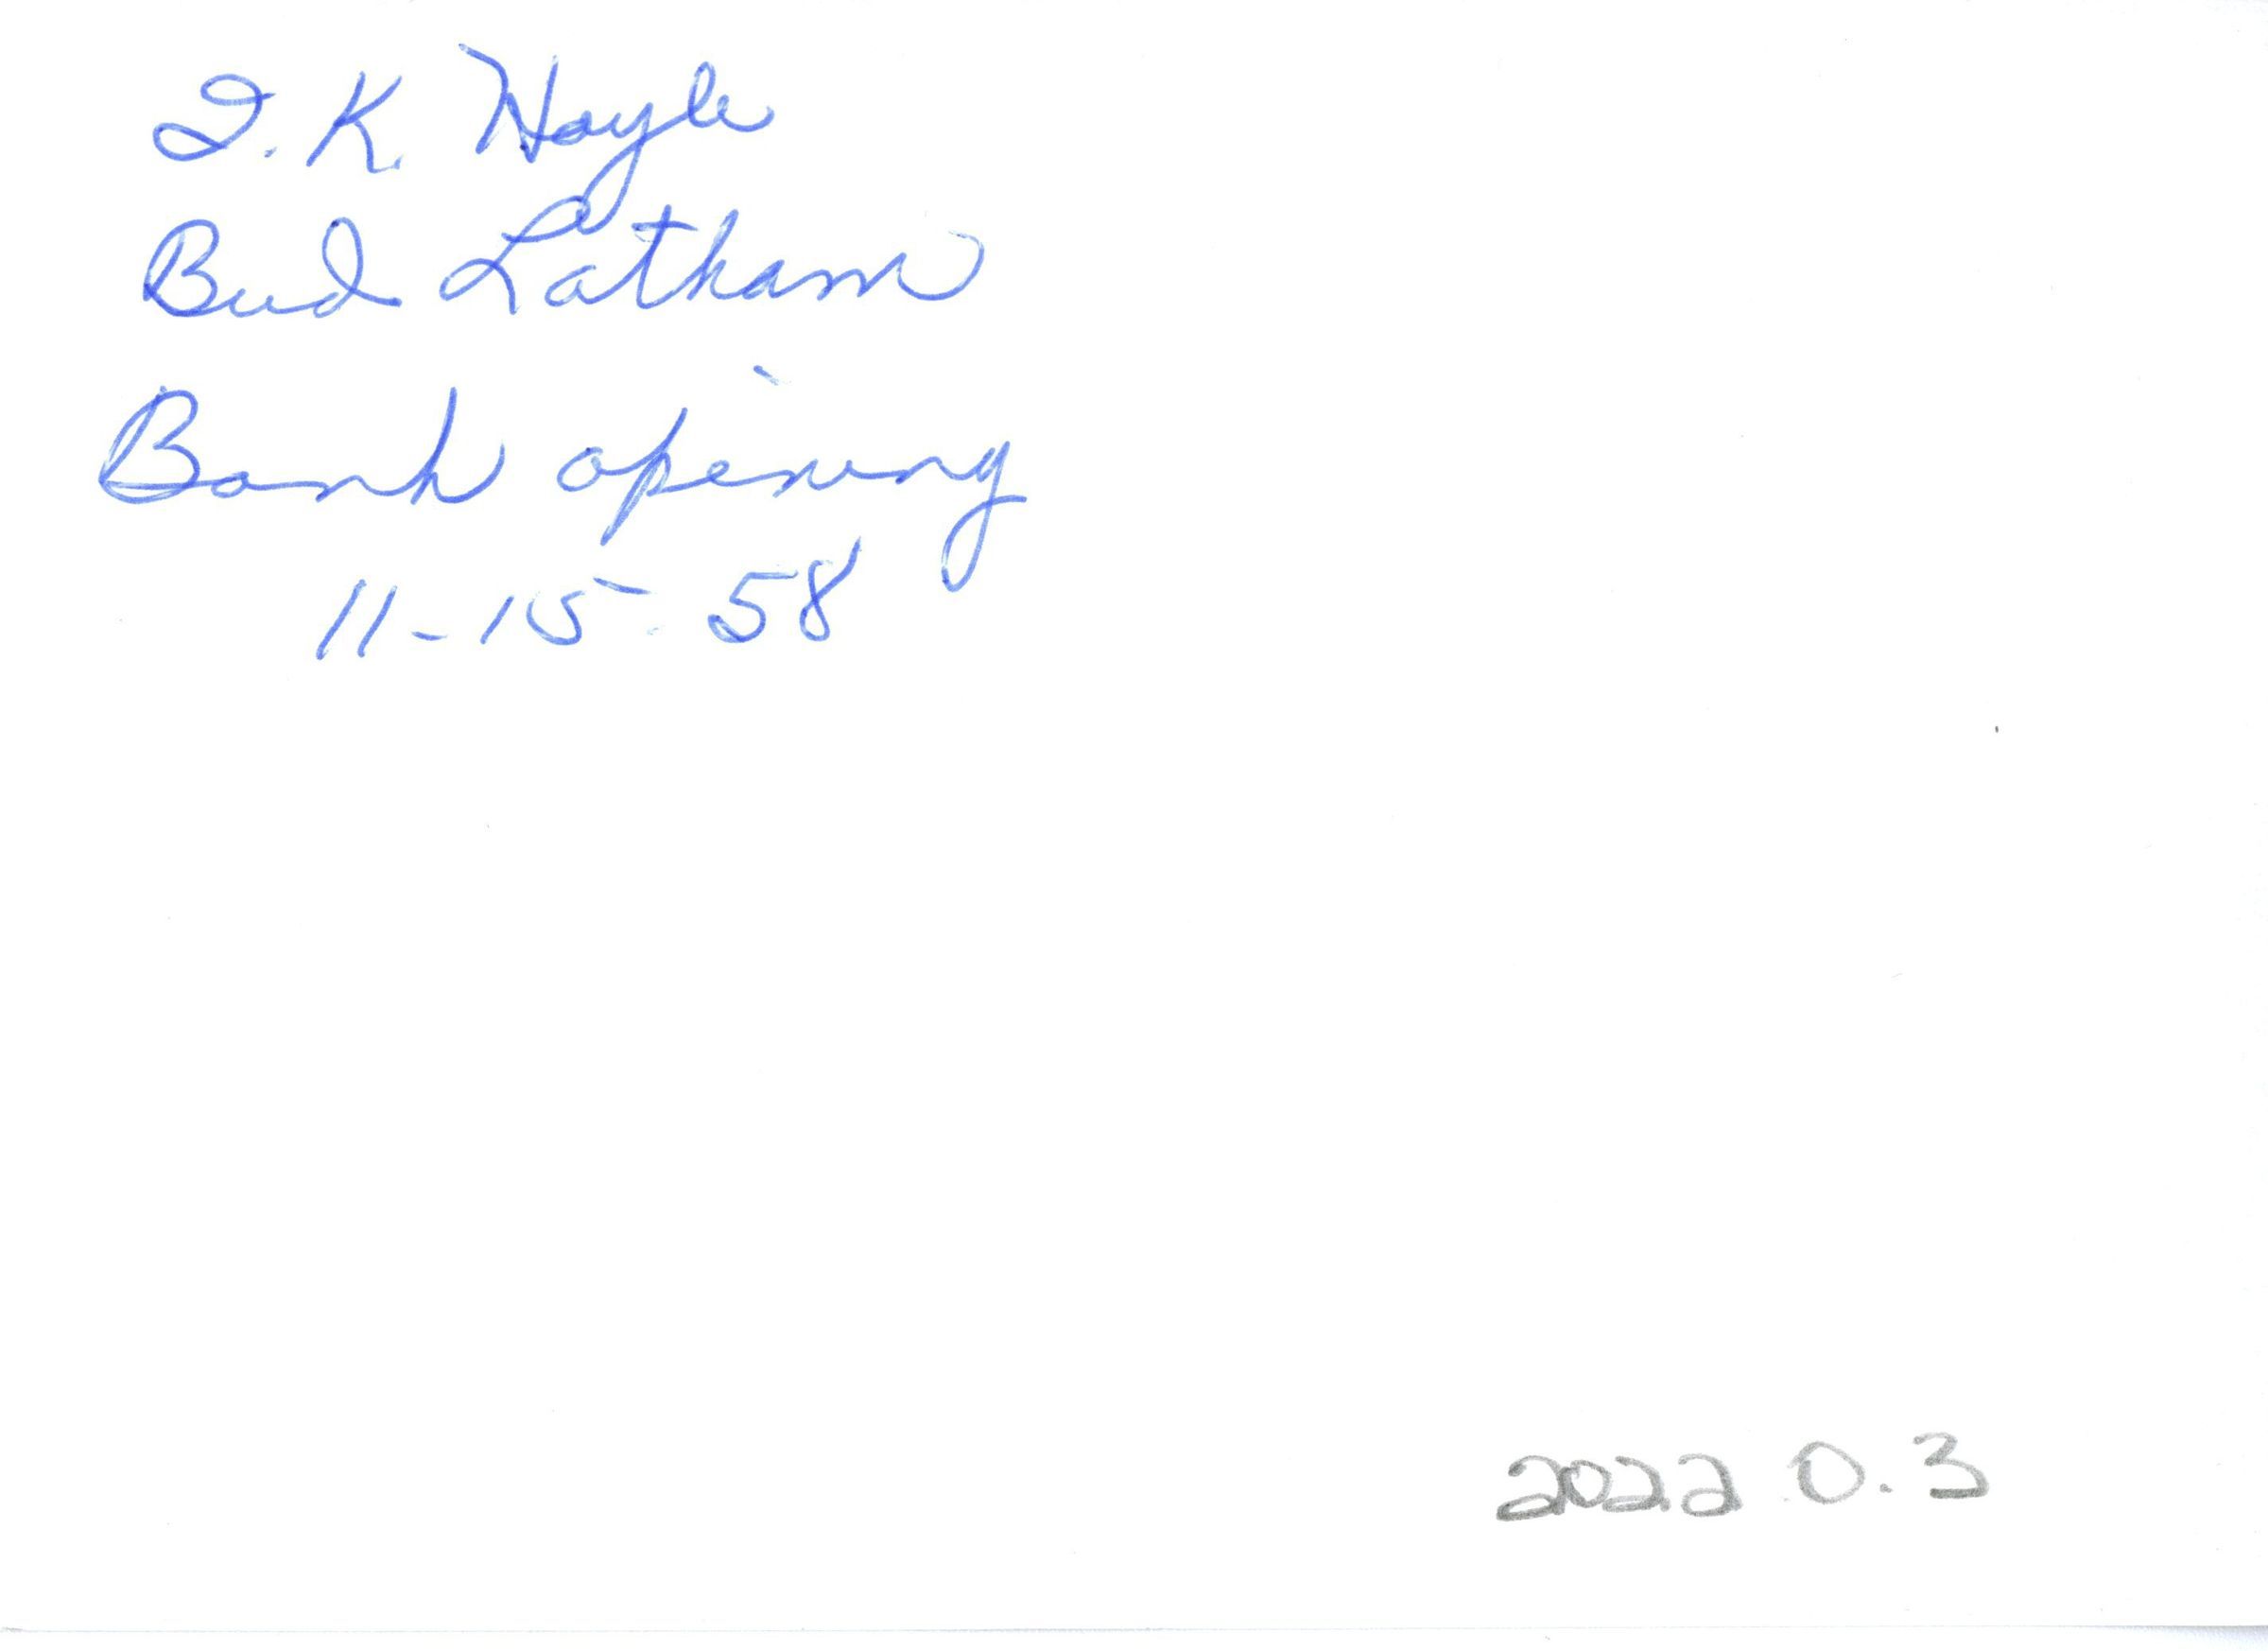 I. K. Hayle
Bud Latham
Bank opening
11-15-58
2022 0.3